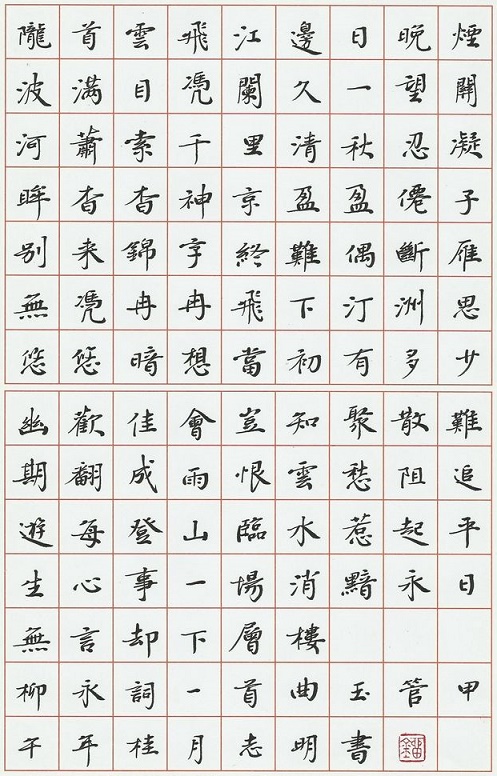 隴首雲飛江邊日晚煙
波満目凴闌久一望關
河蕭索千里清秋忍凝
眸杳杳神京盈盈僊子
別来錦字終難偶斷雁
無凴冉冉飛下汀洲思
悠悠暗想當初有多少
幽歡佳會豈知聚散難
期翻成雨恨雲愁阻追
遊每登山臨水惹起平
生心事一場消黯永日
無言却下層樓
柳永詞一首曲玉管甲
午年桂月志明書